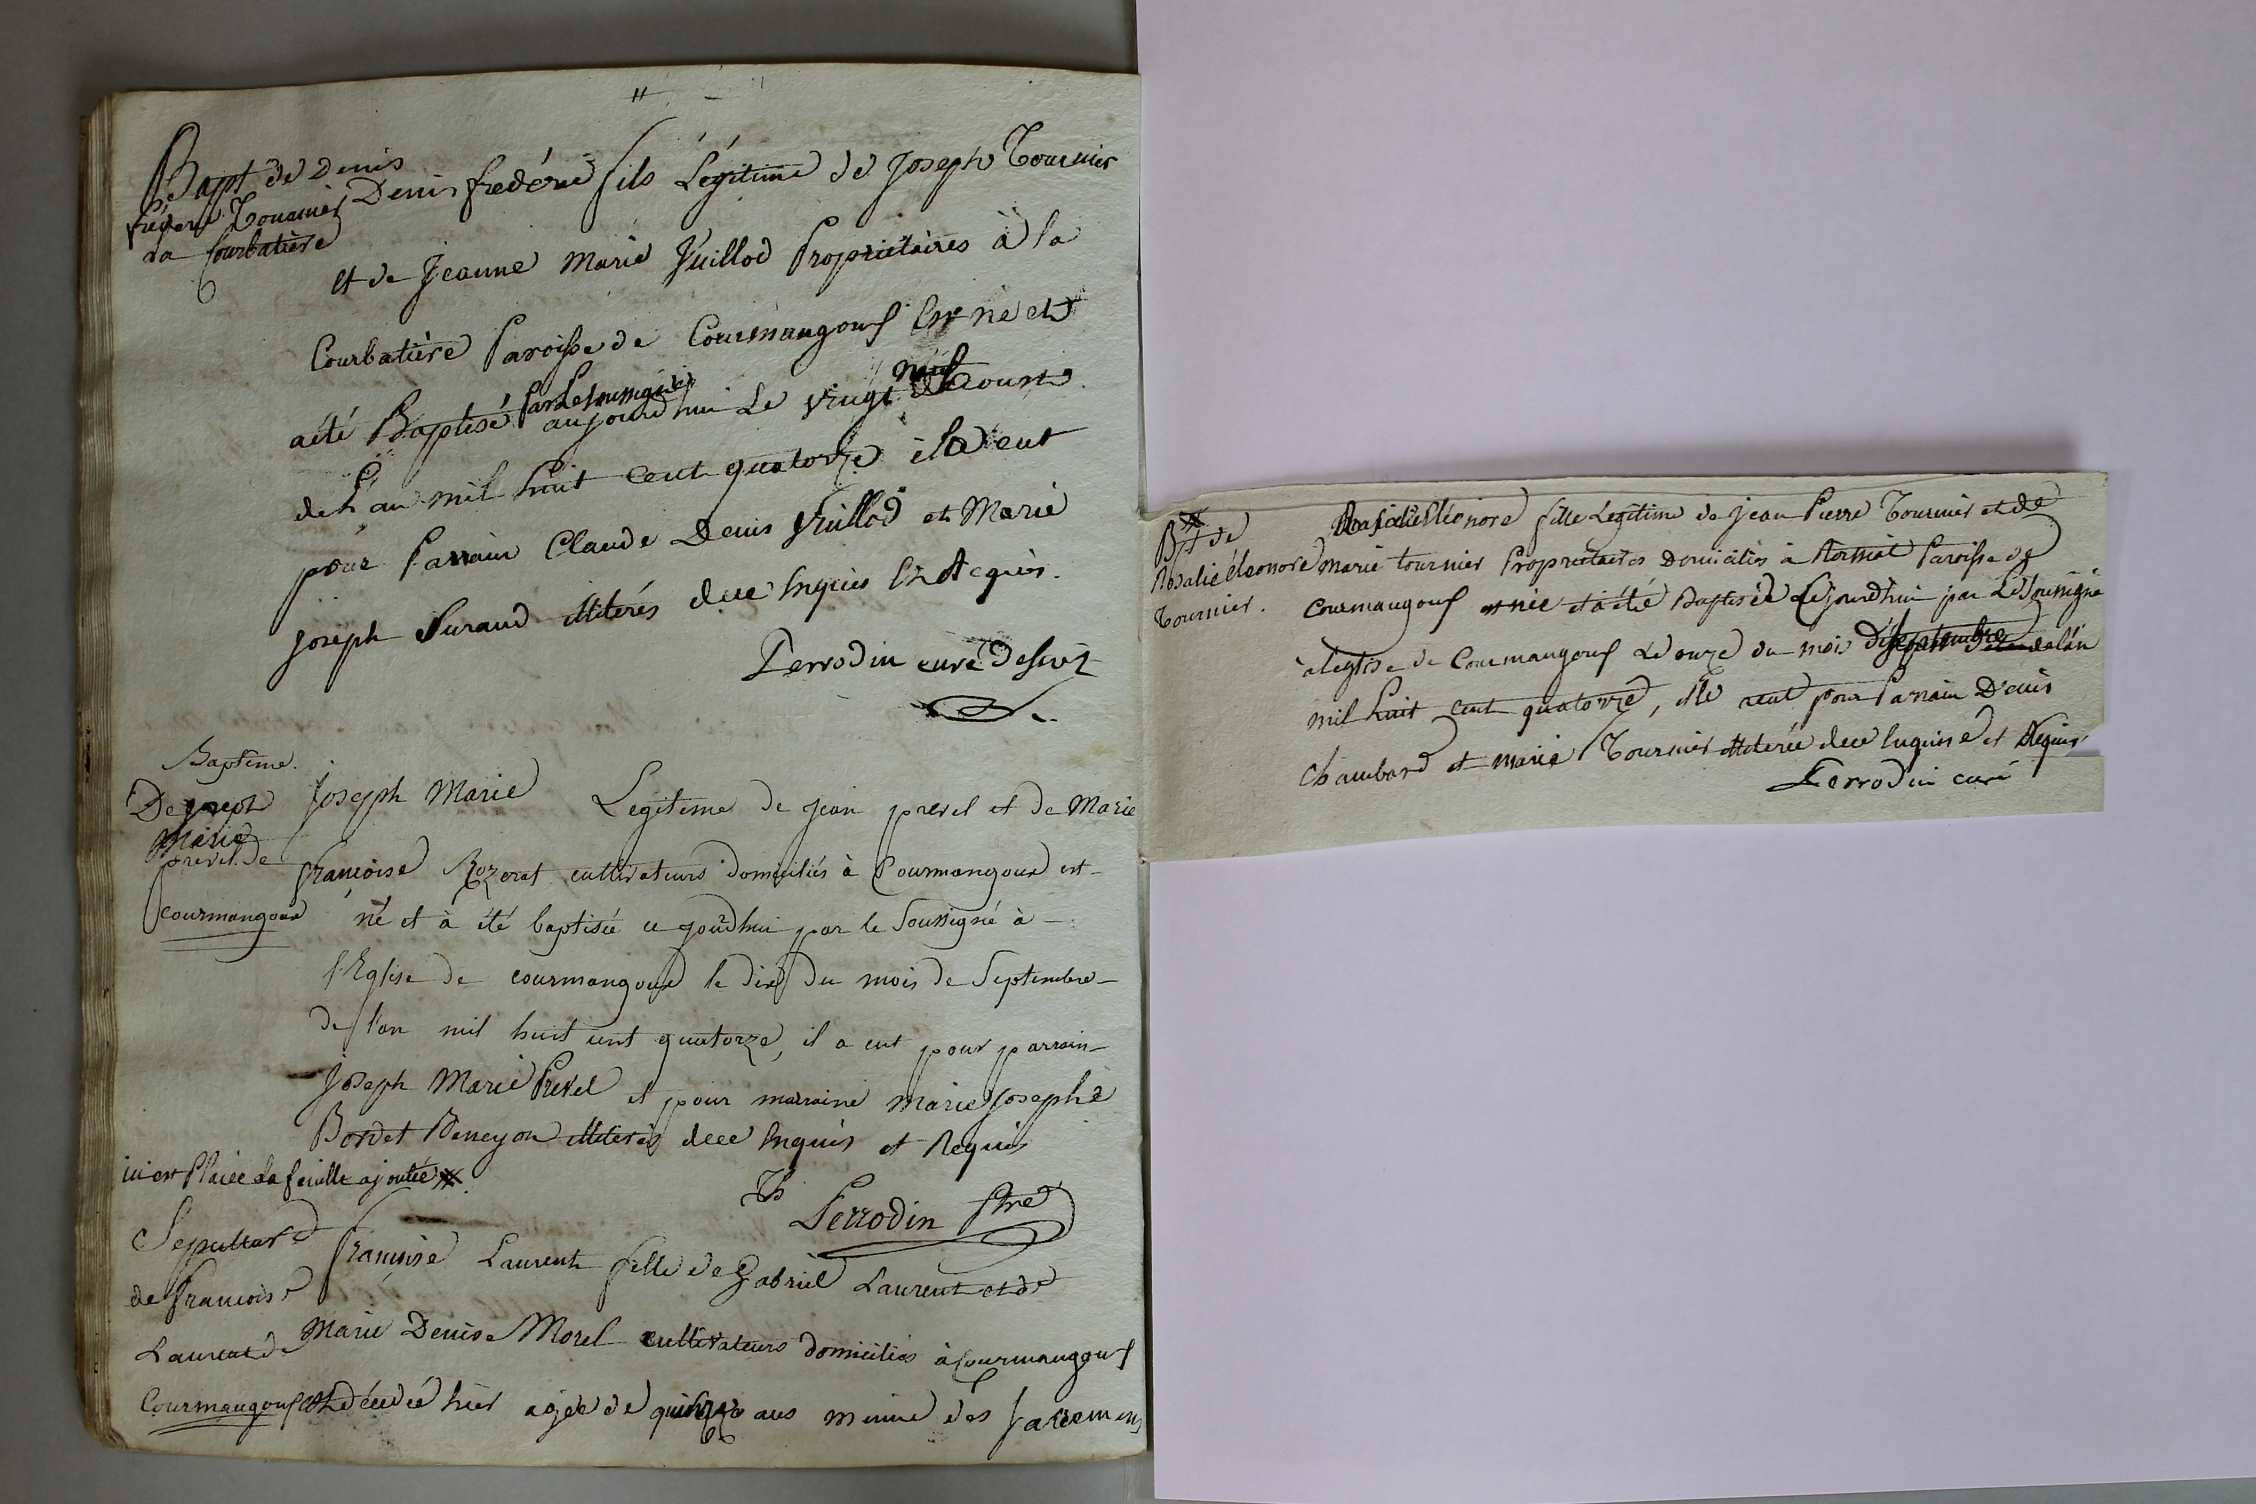 Bapt de Denis
fréderic Tournier
da Courbatière
Denis frédéric fils Légitime de Joseph Tournier
et de Jeanne Marie Vuillod Proprietaires à la
Courbatière Paroisse de Courmangoux Est né et
aété Baptisé par Le soussigné aujourdhui Le vingt neuf aoust
de L'an mil huit cent quatorze il a eut
pour Parrain Claude Denis Vuillod et Marie
Joseph Puraud illiterés deee Inquis Et Requis.
Perrodin curé Desserv
Baptême.
De joseph
Marie
prevel de
Courmangoux
Joseph Marie Legitime de jean prevel et de Marie
françoise Rozerat cultivateurs domiciliés à Courmangoux est
né et à été baptisée ce jourdhui par le Soussigné à
l'Eglise de courmangoux le dix du mois de Septembre
de l'an mil huit cent quatorze, il a eut pour parrain
Joseph Marie Prevel et pour marraine marie josephe
Bordet Beneyon illiterés deee Inquis et Requis
Perrodin Ptre
ici est Placée la feuille ajoutée
Sepulture
de françoise
Laurent de
Courmangoux
françoise Laurent fille de Gabriel Laurent et de
Marie Denise Morel cultivateurs domiciliés à Courmangoux
est décedée hier agée de quinze ans munie des sacremens
Bpt de
Rosalie éleonore
Tournier.
Rosalie Eléonore fille Legitime de jean Pierre Tournier et de
marie tournier Proprietaires Domiciliés à Paroisse de
Courmangoux est née et a été Baptisée Cejourdhui par Le Soussigné
à l'eglise de Courmangoux Le onze du mois de septembre de l'an
mil huit cent quatorze, elle a eut pour Parrain Denis
Chambard et marie Tournier illiterée deee Inquise et Requise
Perrodin curé